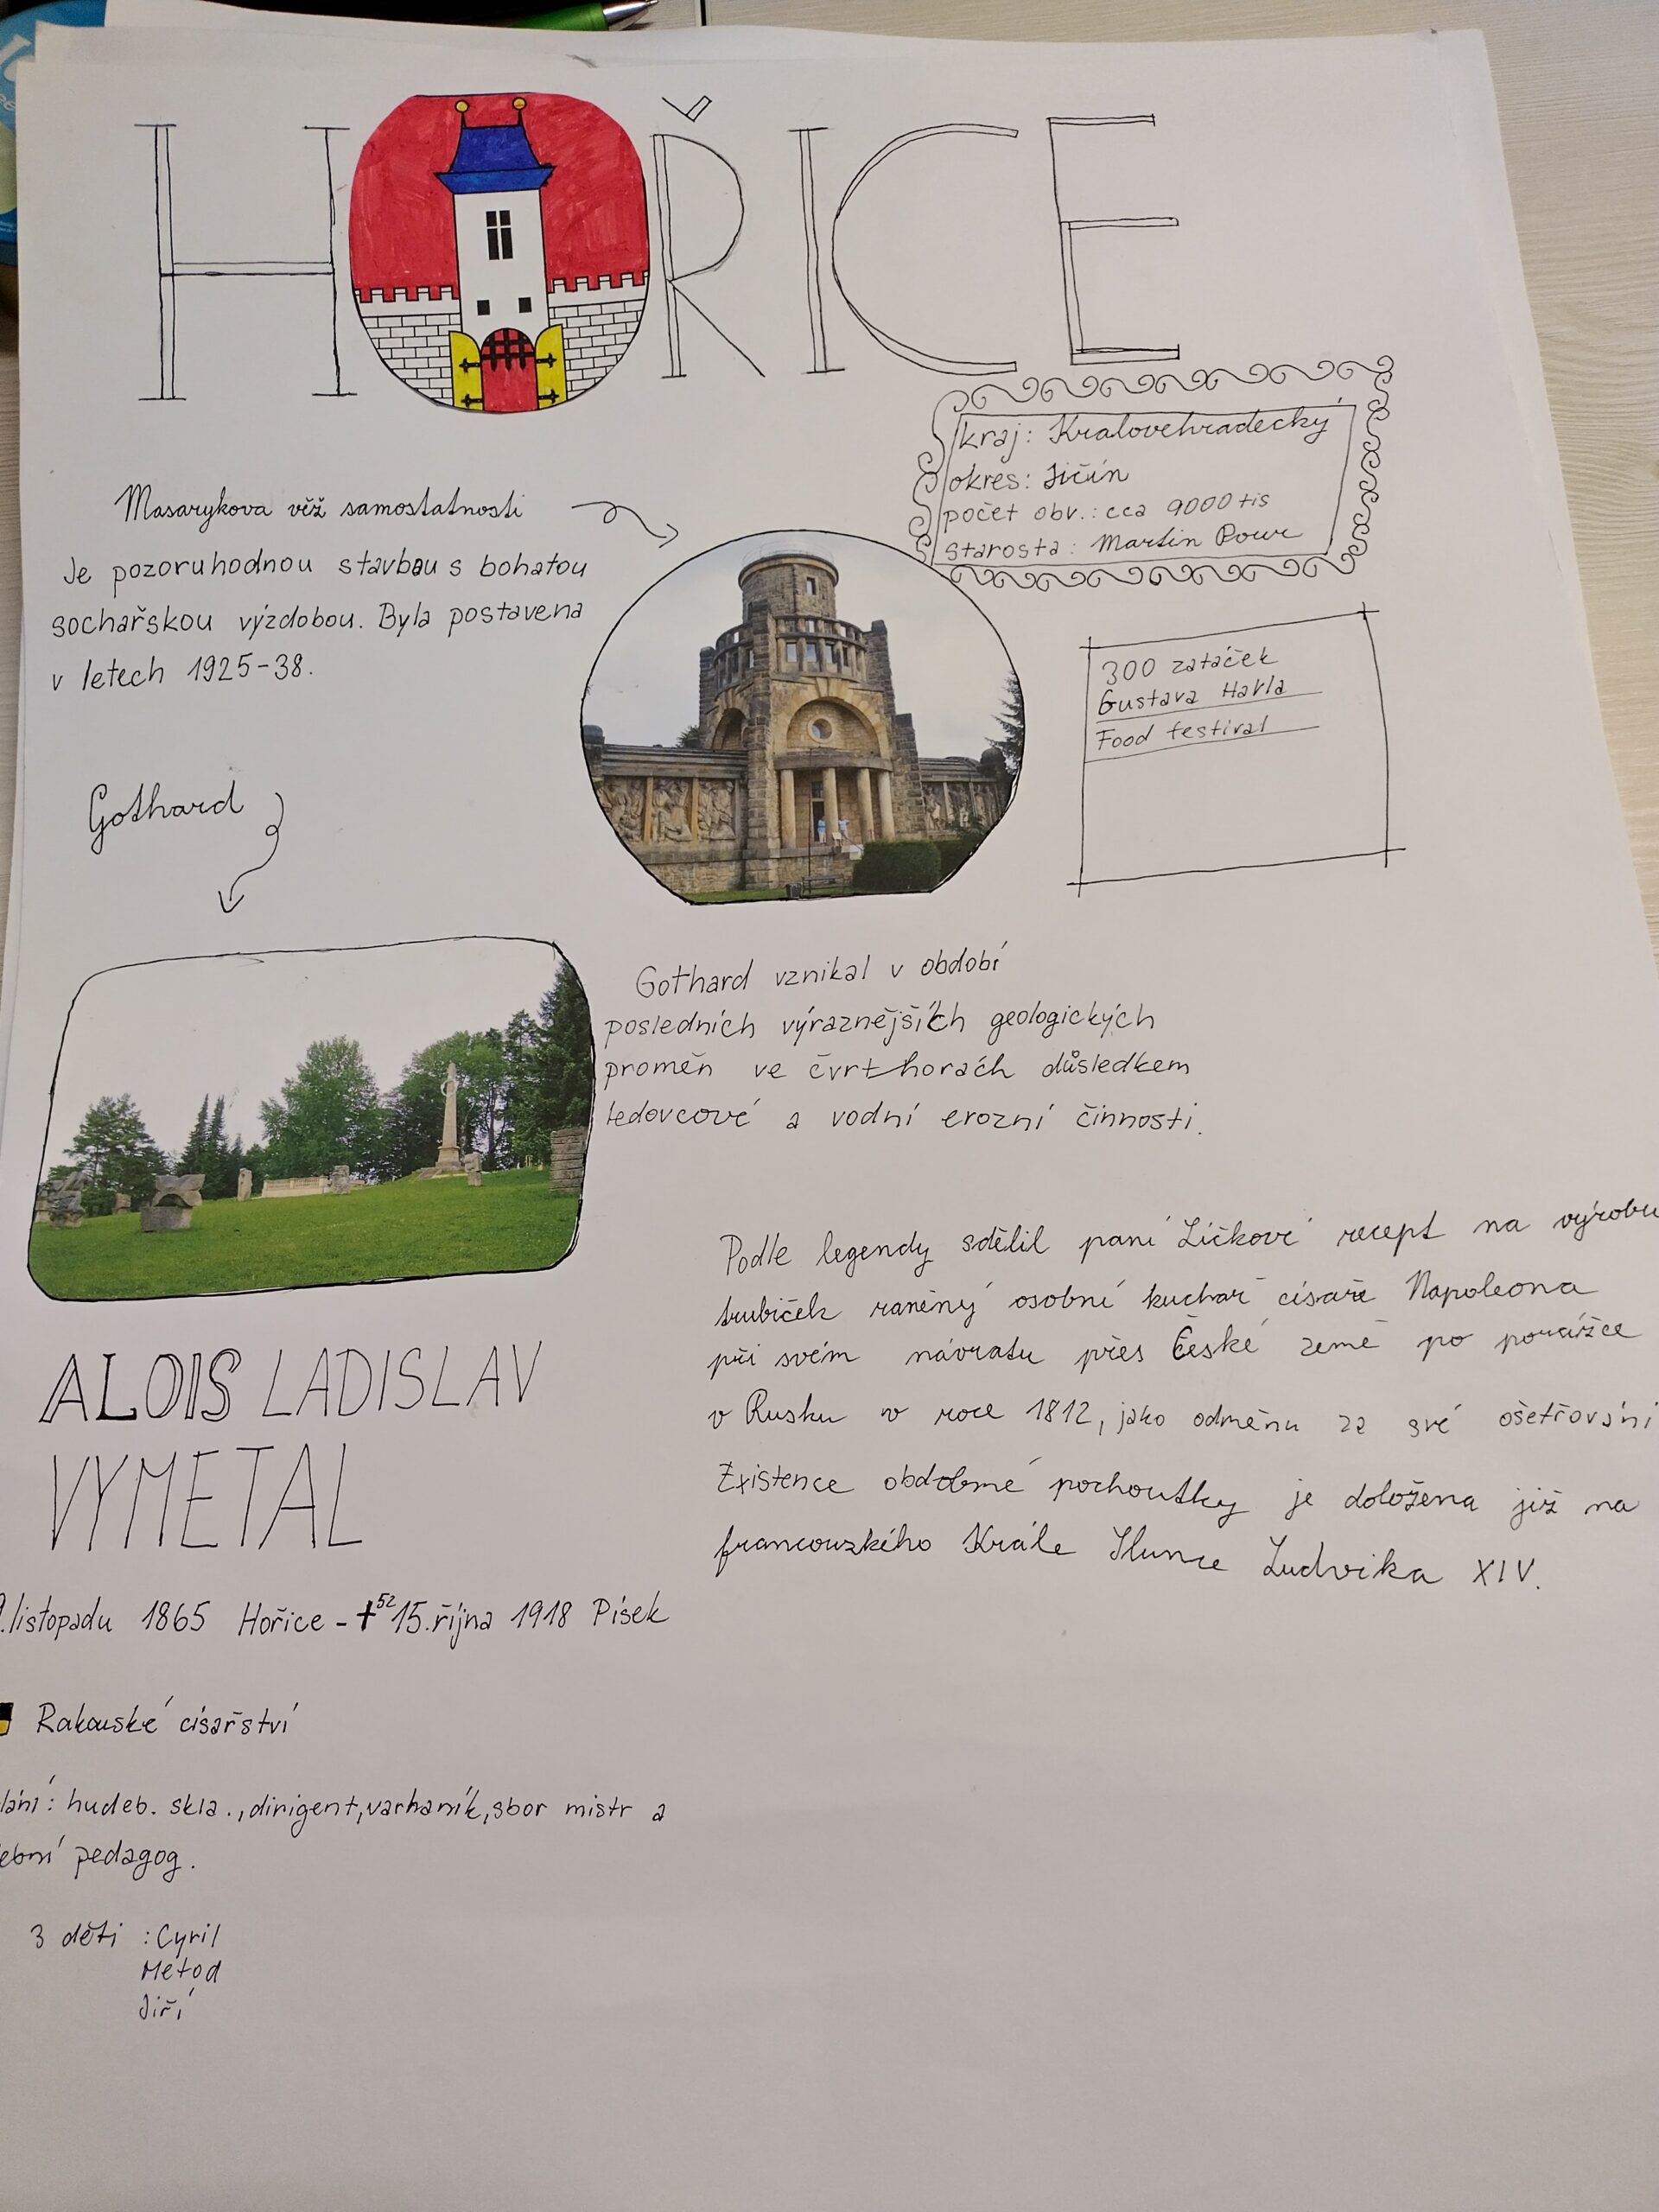 HOŘICE
kraj: Kralovehradecký
okres: Jičín
počet obv.: cca 9000 tis
starosta: Martin Pour
Masarykova věž samostatnosti
Je pozoruhodnou stavbou s bohatou
sochařskou výzdobou. Byla postavena
v letech 1925-38.
300 zatáček
Gustava Havla
Food festival
Gothard
Gothard vznikal v období
posledních výraznějších geologických
proměn ve čtvrthorách důsledkem
ledovcové a vodní erozní činnosti.
Podle legendy sdělil paní Líčkové recept na výrobu
trubiček raněný osobní kuchař císaře Napoleona
při svém návratu přes České země po porážce
v Rusku v roce 1812, jako odměnu za své ošetřování
Existence obdobné pochoutky je doložena již na
francouzského Krále Slunce Ludvika XIV.
ALOIS LADISLAV
VYMETAL
.listopadu 1865 Hořice - †52 15.října 1918 Písek
Rakouské císařství
lání: hudeb. skla., dirigent, varhaník, sbor mistr a
ební pedagog.
3 děti : Cyril
Metod
Jiří